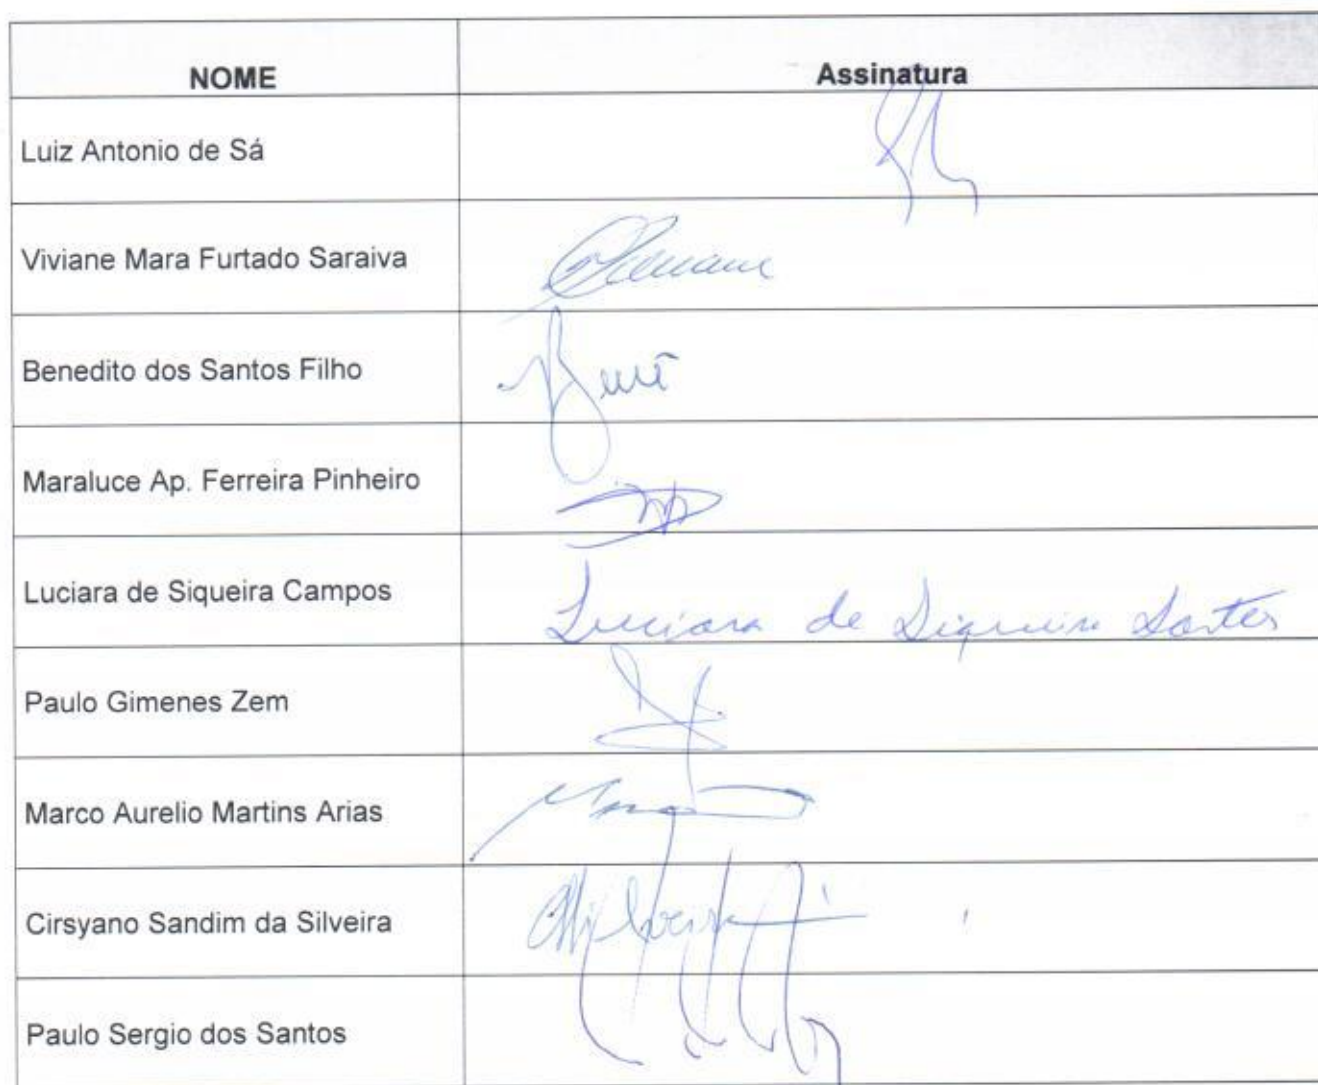 NOME Assinatura
Luiz Antonio de Sá
Viviane Mara Furtado Saraiva
Benedito dos Santos Filho
Maraluce Ap. Ferreira Pinheiro
Luciara de Siqueira Campos Luciara de Siqueira Santos
Paulo Gimenes Zem
Marco Aurelio Martins Arias
Cirsyano Sandim da Silveira
Paulo Sergio dos Santos